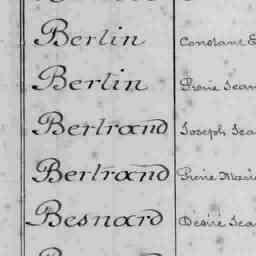 Bertin Constant
Bertin Pierre Jean
Bertrand Joseph Jea
Bertrand Pierre Marie
Besnard Désiré Jea